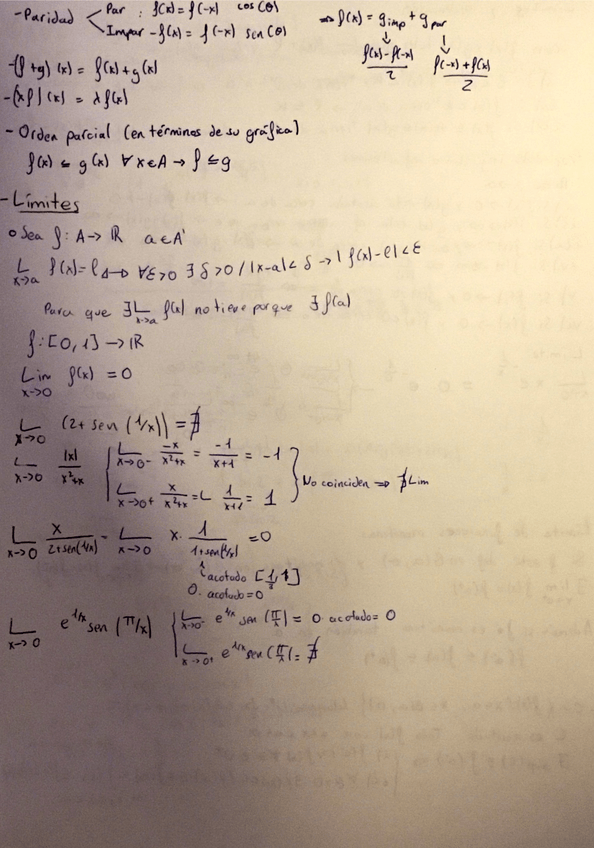 -Paridad < Par : f(x) = f(-x) cos(θ)
Impar -f(x) = f(-x) sen(θ)
⇒ f(x) = g imp + g par
↓ ↓
f(x)-f(-x) / 2 f(-x)+f(x) / 2
-(f+g)(x) = f(x)+g(x)
-(λf)(x) = λf(x)
- Orden parcial (en términos de su gráfica)
f(x) ≤ g(x) ∀x∈A → f ≤ g
- Límites
o Sea f: A → ℝ a ∈ A'
L x→a f(x)=l ⟺ ∀ε>0 ∃δ>0 / |x-a|<δ → |f(x)-l|<ε
Para que ∃ L x→a f(x) no tiene porque ∃ f(a)
f: [0,1] → ℝ
Lim x→0 f(x) = 0
L x→0 (2+sen(1/x)) = ∄
L x→0 |x| / x²+x
L x→0- -x / x²+x = -1 / x+1 = -1
L x→0+ x / x²+x = L 1 / x+1 = 1
No coinciden ⇒ ∄ Lim
L x→0 x / 2+sen(1/x) = L x→0 x · 1 / 1+sen(1/x) = 0
acotado [1/3,1]
0 · acotado = 0
L x→0 e^1/x sen(π/x)
L x→0- e^1/x sen(π/x) = 0 · acotado = 0
L x→0+ e^1/x sen(π/x) = ∄